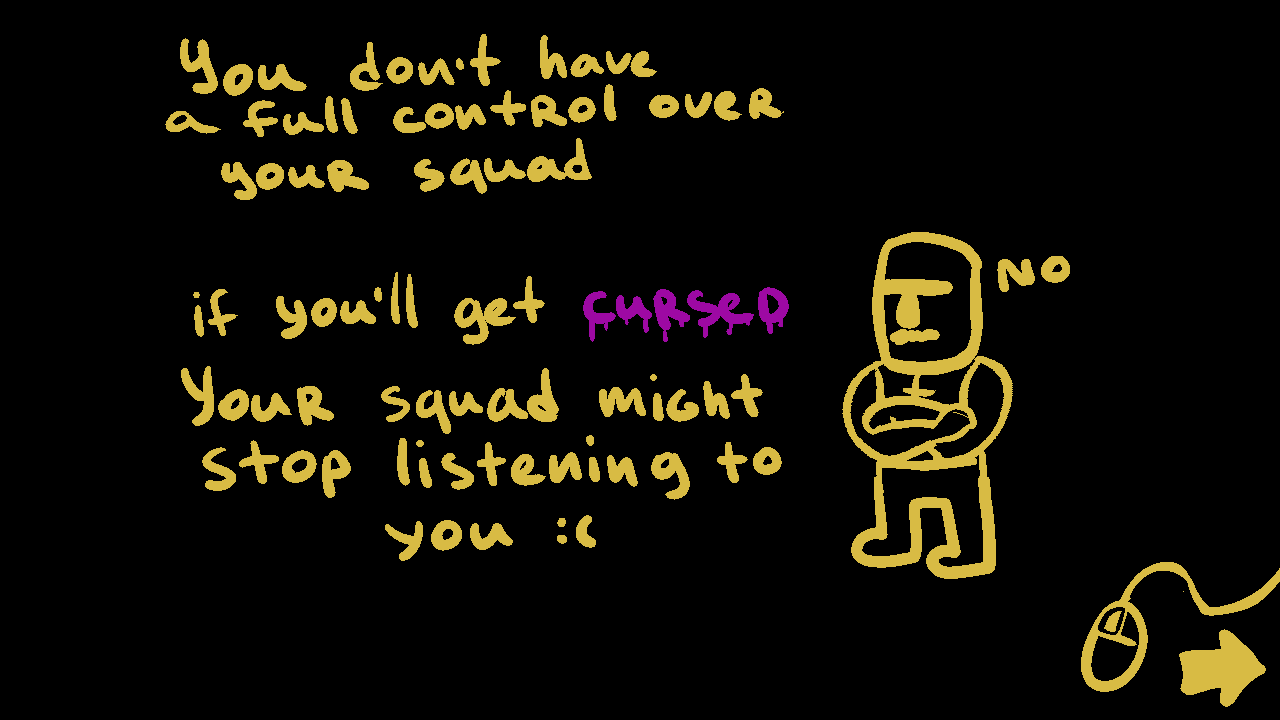 You don't have
a full control over
your squad
NO
if you'll get cursed
Your squad might
stop listening to
you :(